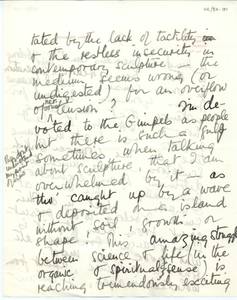 tated by the lack of tactility,
& the restless insecurity in
contemporary sculpture – the
medium seems wrong (or
undigested) for an overflow
of illusion? Im de-
voted to the Gimpels as people
but there is such a gulf
sometimes, when talking
about sculpture, that I am
overwhelmed by it – as
tho' caught up by a wave
& deposited on an island
without soil, growth or
shape. This amazing struggle
between science & life (in the
organic & spiritual sense) is
reaching tremendously exciting